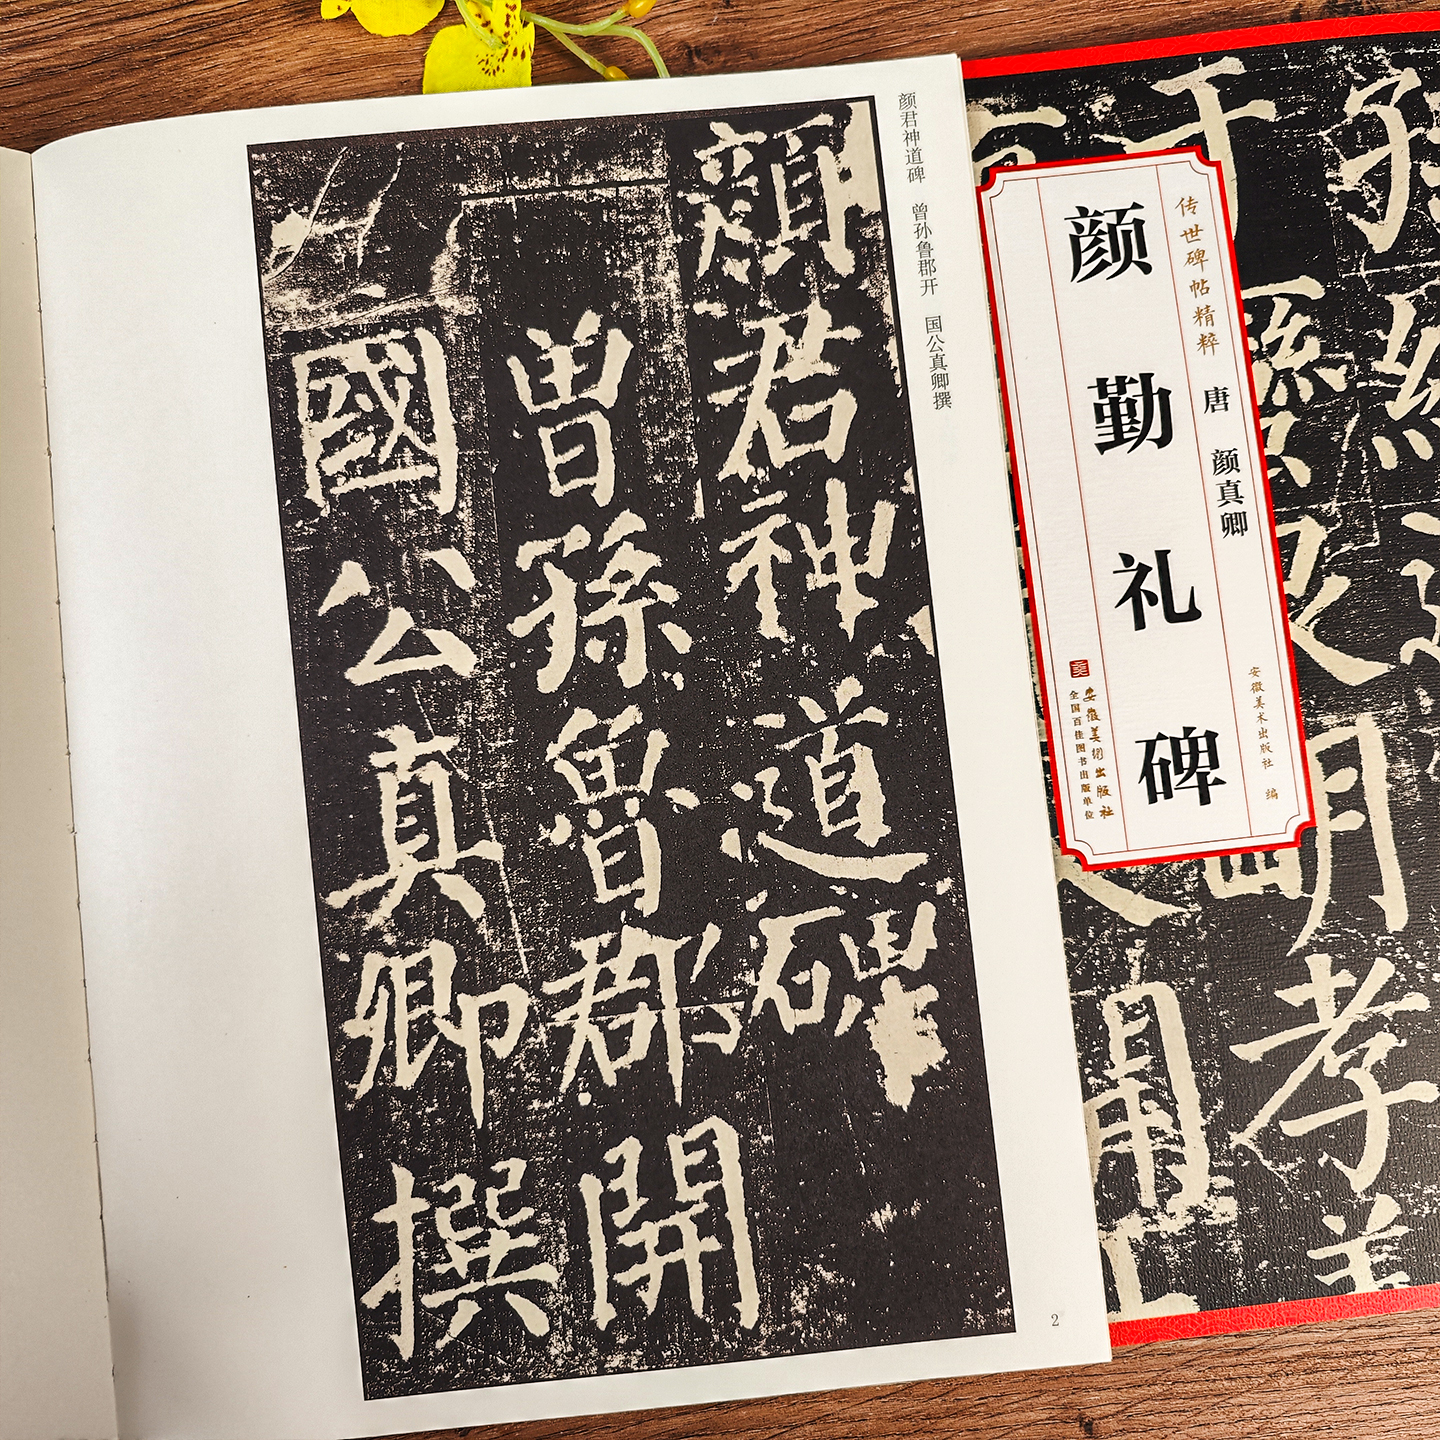 顏君神道碑
曾孫魯郡開
國公真卿撰
颜君神道碑 曾孙鲁郡开 国公真卿撰
2
传世碑帖精粹
唐 颜真卿
安徽美术出版社 编
颜勤礼碑
安徽美术出版社
全国百佳图书出版单位
孝
明